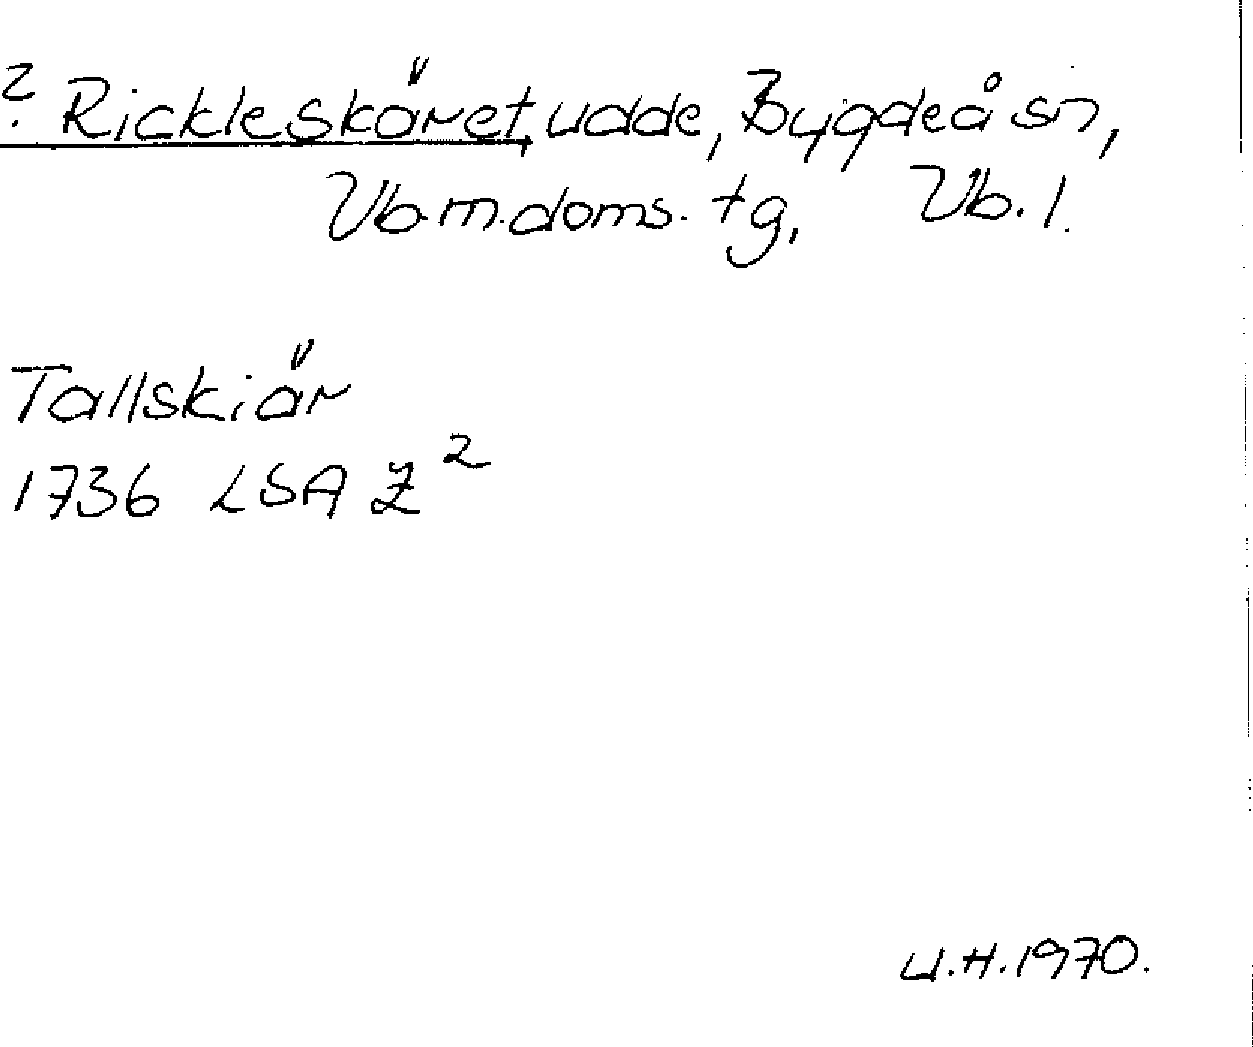 ? Rickleskäret, udde, Bygdeå sn,
Vb.m.doms. tg, Vb. l.
Tallskiär
1736 LSA Z²
U.H. 1970.